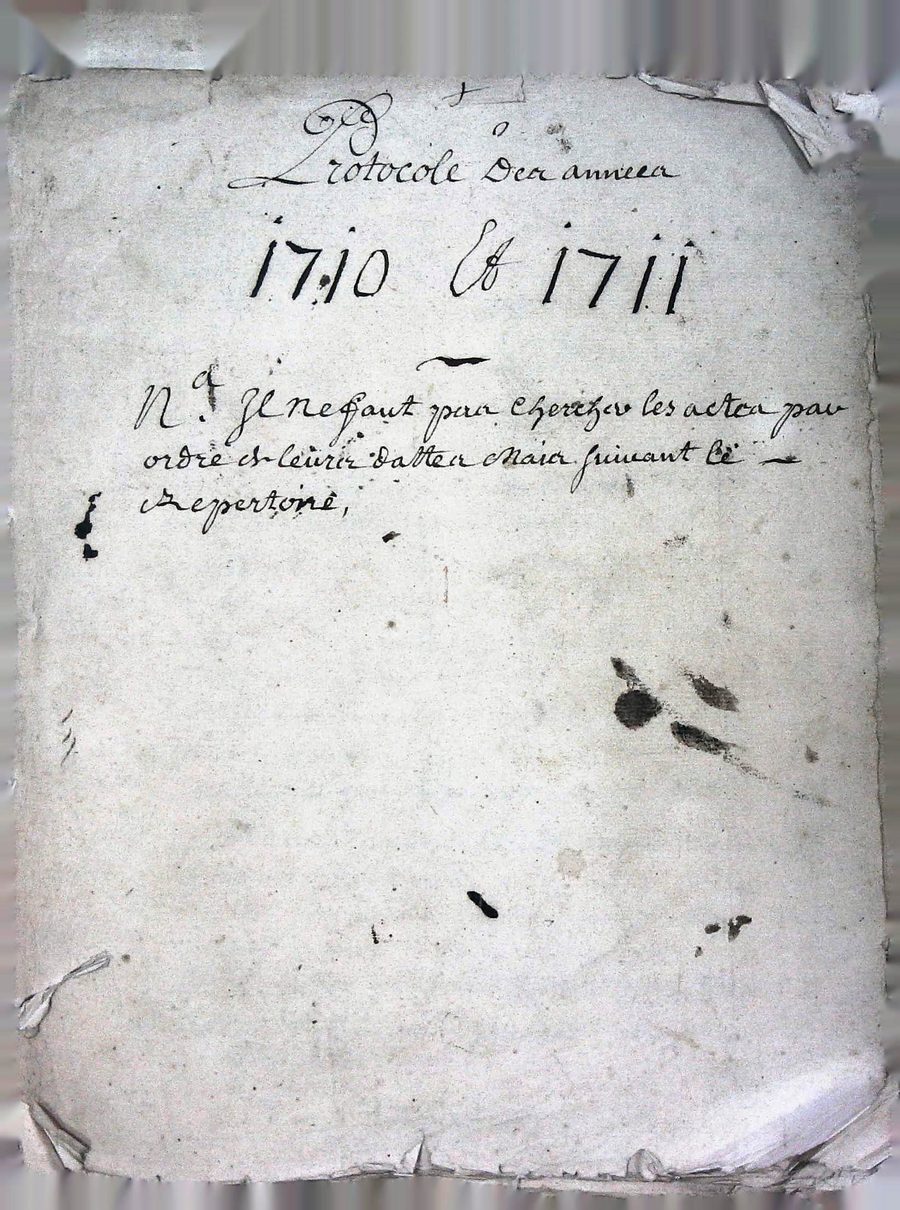 Protocole des années
1710 Et 1711
Na. Il ne faut pas chercher les actes par
ordre de leurs dattes Mais suivant le
Repertoire,